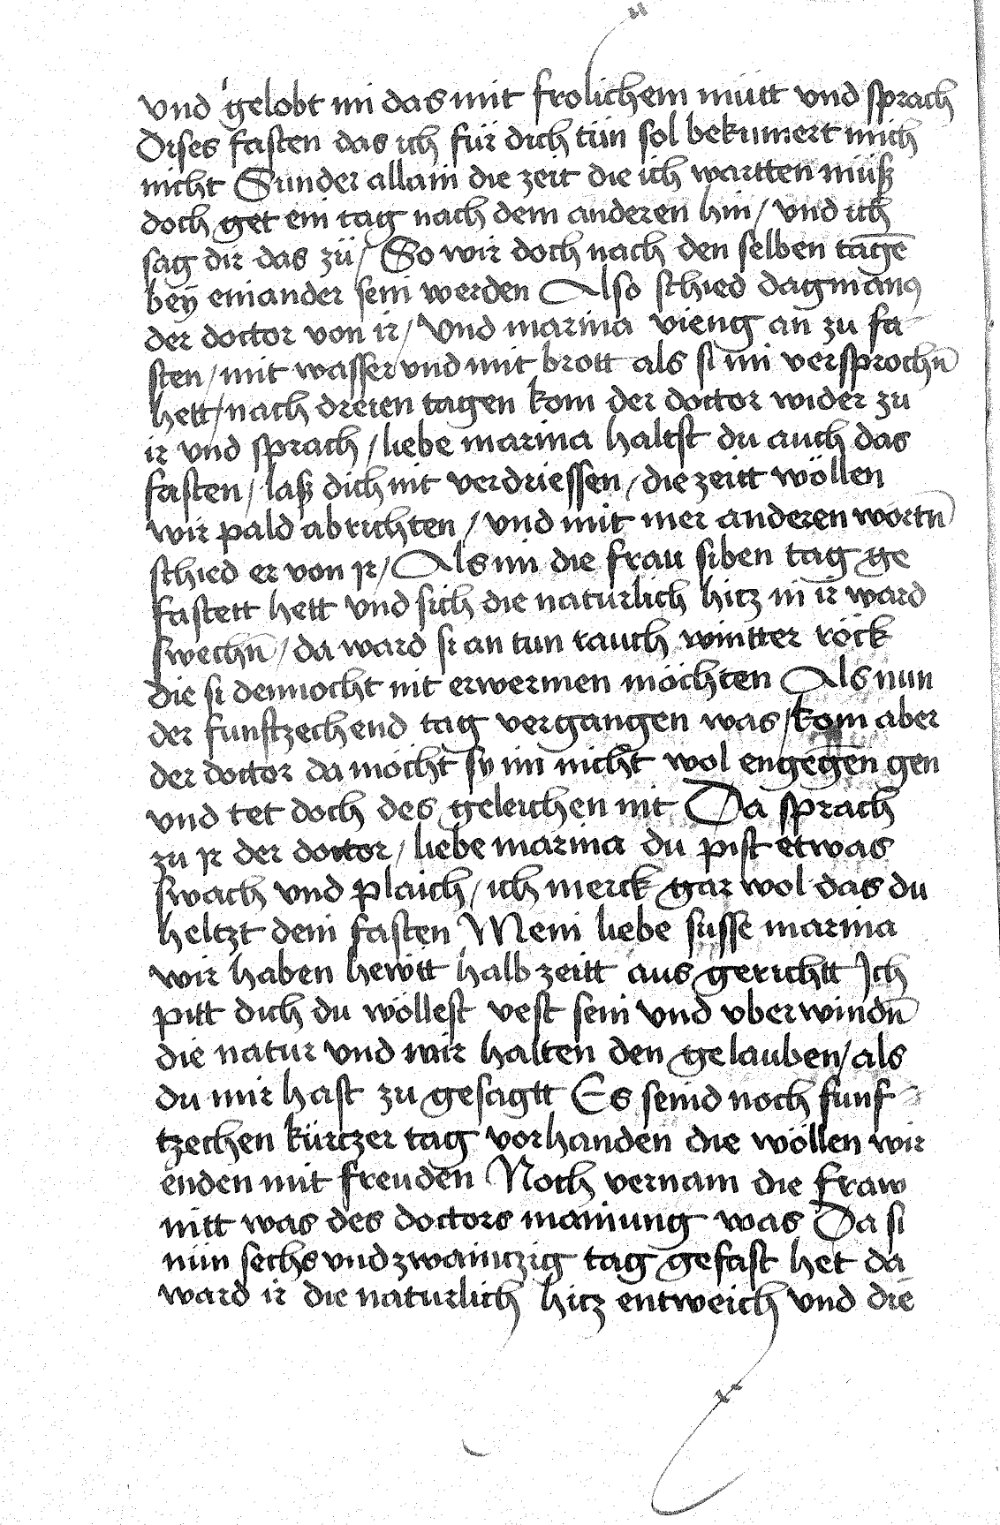 vnd gelobt im das mit frolichem mütt vnd sprach
Dises fasten das ich für dich tün sol bekumert mich
nicht Sunder allain die zeit die ich wartten müß
doch get ein tag nach dem anderen hin / vnd ich
sag dir das zü / So wir doch nach den selben tagē
bey einander sein werden Also schied dagmanꝯ
der doctor von ir / Vnd marina vieng an zu fa
sten / mit wasser vnd mit brott als si im versprochn̄
hett / nach dreien tagen kom der doctor wider zu
ir vnd sprach / liebe marina haltst du auch das
fasten / laß dich nit verdriessen / die zeitt wöllen
wir pald abrichten / vnd mit mer anderen wortn̄
schied er von jr / Als im die frau siben tag ge
fastett hett vnd sich die naturlich hitz in ir ward
swechn̄ / da ward si an tun rauch wintter röck
die si dennocht nit erwermen möchten Als nun
der funftzechend tag vergangen was / kom aber
der doctor da möcht sy im nicht wol engegen gen
vnd tet doch des geleichen nit Da sprach
zu jr der doctor / liebe marina du pist etwas
swach vnd plaich / ich merck gar wol das du
heltzt dein fasten Mein liebe susse marina
wir haben hewtt halb zeitt aus gerichtt Ich
pitt dich du wöllest vest sein vnd vberwindn̄
die natur vnd wir halten den gelauben / als
du mir hast zu gesagtt Es seind noch funf
tzechen kürtzer tag vorhanden die wöllen wir
enden mit freuden Noch vernam die fraw
nitt was des doctors mainung was Da si
nün sechs vnd zwaintzig tag gefast het da
ward ir die naturlich hitz entweich vnd die